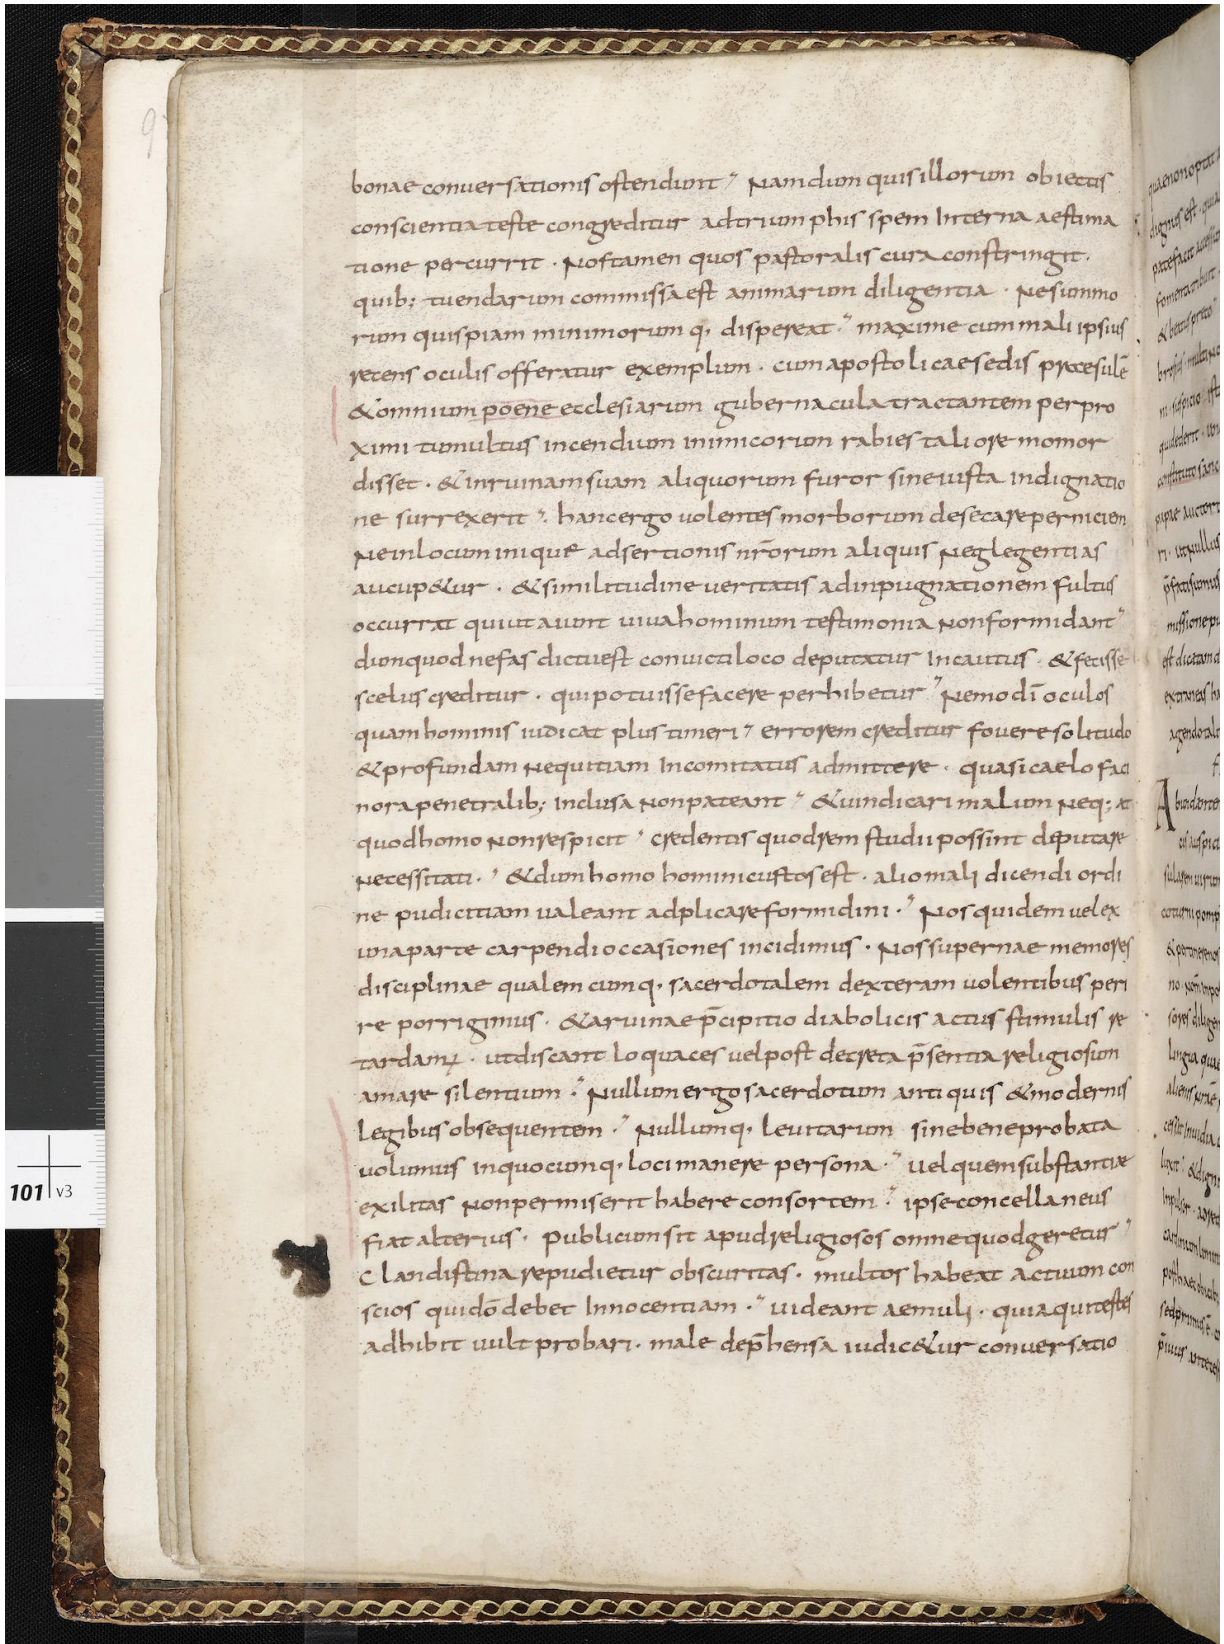 bonae conversationis ostendunt Nam dum quis illorum obiectis
conscientia teste congreditur ad triumphis spem Interna aestima
tione percurrit · Nos tamen quos pastoralis cura constringit ·
quib; tuendarum commissa est animarum diligentia · Ne summo
rum quispiam minimorum q· dispereat · maxime cum mali ipsius
recens oculis offeratur exemplum · cum apostolicae sedis presulē
& omnium poene ecclesiarum gubernacula tractantem per pro
ximi tumultus incendium inimicorum rabies tali ore momor
disset · & in ruinam suam aliquorum furor sine iusta indignatio
ne surrexerit · hanc ergo volentes morborum desecare perniciem
Ne in locum inique adsertionis nr̄orum aliquis Neglegentias
aucup&ur · & similitudine veritatis ad inpugnationem fultus
occurrat qui vitavunt viva hominum testimonia Non formidant
dum quod nefas dictu est convicti loco deputatur Incautus · & fecisse
scelus creditur · qui potuisse facere perhibetur Nemo dī oculos
quam hominis iudicat plus timeri errorem creditur fovere solitudo
& profundam Nequitiam Incomitatus admittere · quasi caelo faci
nora penetralib; inclusa Non pateant & vindicari malum Neq; at
quod homo Non respicit credentis quod rem studii possint deputare
Necessitati · & dum homo homini custos est · alio mali dicendi ordi
ne pudicitiam valeant adplicare formidini · Nos quidem vel ex
una parte carpendi occasiones incidimus · Nos supernae memores
disciplinae qualemcumq· sacerdotalem dexteram volentibus peri
re porrigimus · & a ruinae p̄cipitio diabolicis actus stimulis re
tardam; · ut discant loquaces vel post decreta p̄sentia religiosum
amare silentium · Nullum ergo sacerdotum antiquis & modernis
legibus obsequentem · Nullumq· levitarum sine bene probata
volumus in quocumq· loci manere persona · vel quem substantiae
exilitas Non permiserit habere consortem · ipse concellaneus
fiat alterius · publicum sit apud religiosos omne quod geretur
Clandistina repudietur obscuritas · multos habeat actuum con
scios qui dō debet Innocentiam · videant aemuli · quia qui testes
adhibit vult probari · male dep̄hensa iudic&ur conversatio